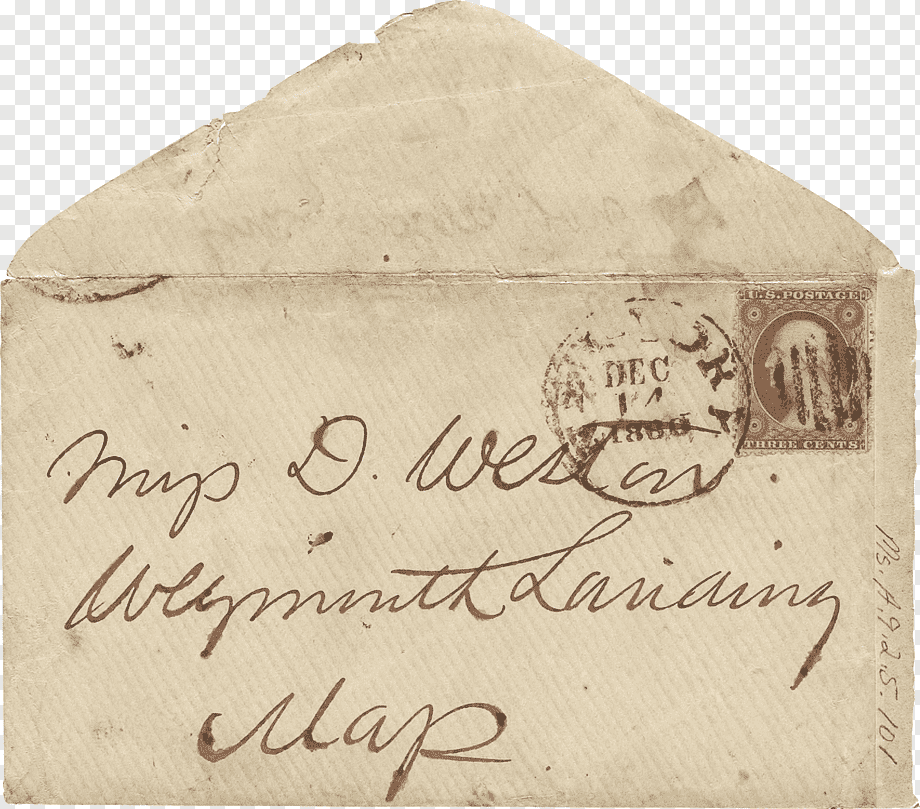 U.S. POSTAGE
DEC
14
1860
THREE CENTS
Miss D. Weston.
Weymouth Landing
Mass
Ms. A.9.2.5.101